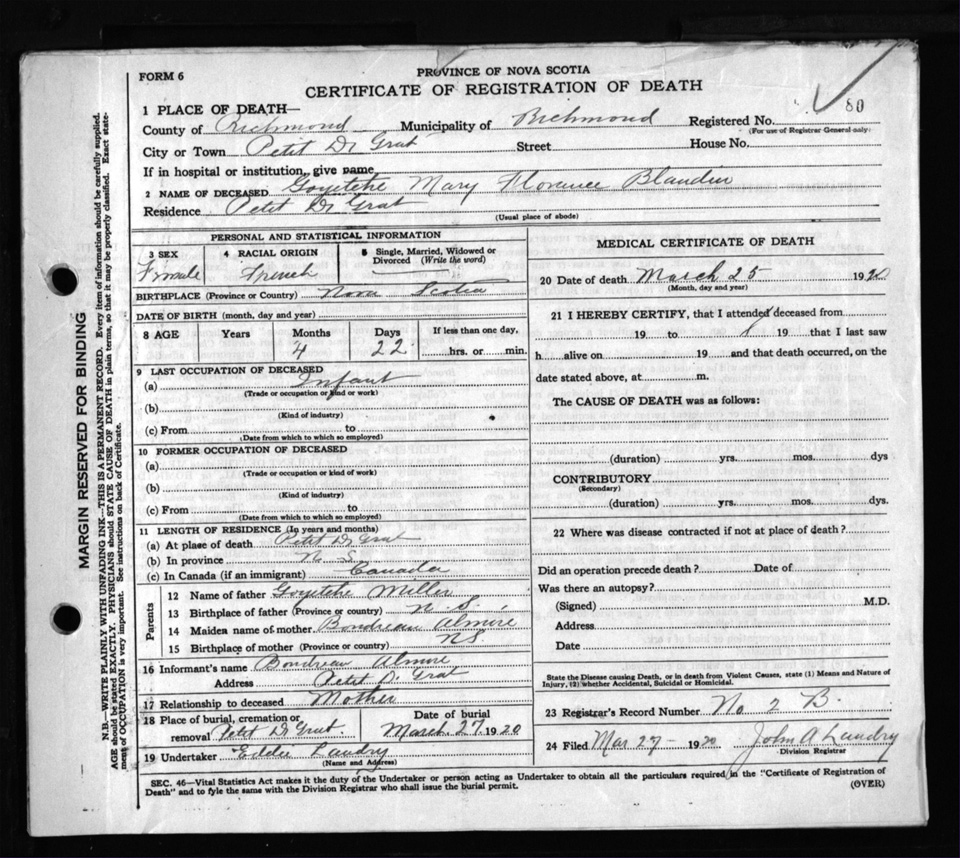 FORM 6
PROVINCE OF NOVA SCOTIA
CERTIFICATE OF REGISTRATION OF DEATH
80
1 PLACE OF DEATH—
County of Richmond Municipality of Richmond Registered No.
(For use of Registrar General only)
City or Town Petit De Grat Street House No.
If in hospital or institution, give name
2 NAME OF DECEASED Goyetche Mary Florence Blandin
Residence Petit De Grat
(Usual place of abode)
PERSONAL AND STATISTICAL INFORMATION
3 SEX 4 RACIAL ORIGIN 5 Single, Married, Widowed or Divorced (Write the word)
Female French
BIRTHPLACE (Province or Country) Nova Scotia
DATE OF BIRTH (month, day and year)
8 AGE Years Months Days If less than one day,
4 22 hrs. or min.
9 LAST OCCUPATION OF DECEASED
(a) Infant
(Trade or occupation or kind or work)
(b)
(Kind of industry)
(c) From to
(Date from which to which so employed)
10 FORMER OCCUPATION OF DECEASED
(a)
(Trade or occupation or kind of work)
(b)
(Kind of industry)
(c) From to
(Date from which to which so employed)
11 LENGTH OF RESIDENCE (In years and months)
(a) At place of death Petit De Grat
(b) In province N. S.
(c) In Canada (if an immigrant) Canada
Parents
12 Name of father Goyetche Miller
13 Birthplace of father (Province or country) N. S.
14 Maiden name of mother Bondreau Almire
15 Birthplace of mother (Province or country) N S.
16 Informant's name Bondreau Almire
Address Petit D Grat
17 Relationship to deceased Mother
18 Place of burial, cremation or removal Petit De Grat. Date of burial March 27 1920
19 Undertaker Eddie Landry
(Name and Address)
MEDICAL CERTIFICATE OF DEATH
20 Date of death March 25 1920
(Month, day and year)
21 I HEREBY CERTIFY, that I attended deceased from
19 to 19 that I last saw
h alive on 19 and that death occurred, on the
date stated above, at m.
The CAUSE OF DEATH was as follows:
(duration) yrs. mos. dys
CONTRIBUTORY
(Secondary)
(duration) yrs. mos. dys.
22 Where was disease contracted if not at place of death?
Did an operation precede death? Date of
Was there an autopsy?
(Signed) M.D.
Address
Date
State the Disease causing Death, or in death from Violent Causes, state (1) Means and Nature of
Injury, (2) whether Accidental, Suicidal or Homicidal.
23 Registrar's Record Number No 2 B.
24 Filed Mar 27 - 1920 John A Landry
Division Registrar
SEC. 46—Vital Statistics Act makes it the duty of the Undertaker or person acting as Undertaker to obtain all the particulars required in the "Certificate of Registration of
Death" and to fyle the same with the Division Registrar who shall issue the burial permit.
(OVER)
MARGIN RESERVED FOR BINDING
N.B.—WRITE PLAINLY WITH UNFADING INK—THIS IS A PERMANENT RECORD. Every item of information should be carefully supplied.
AGE should be stated EXACTLY. PHYSICIANS should STATE CAUSE OF DEATH in plain terms, so that it may be properly classified. Exact state-
ment of OCCUPATION is very important. See instructions on back of Certificate.